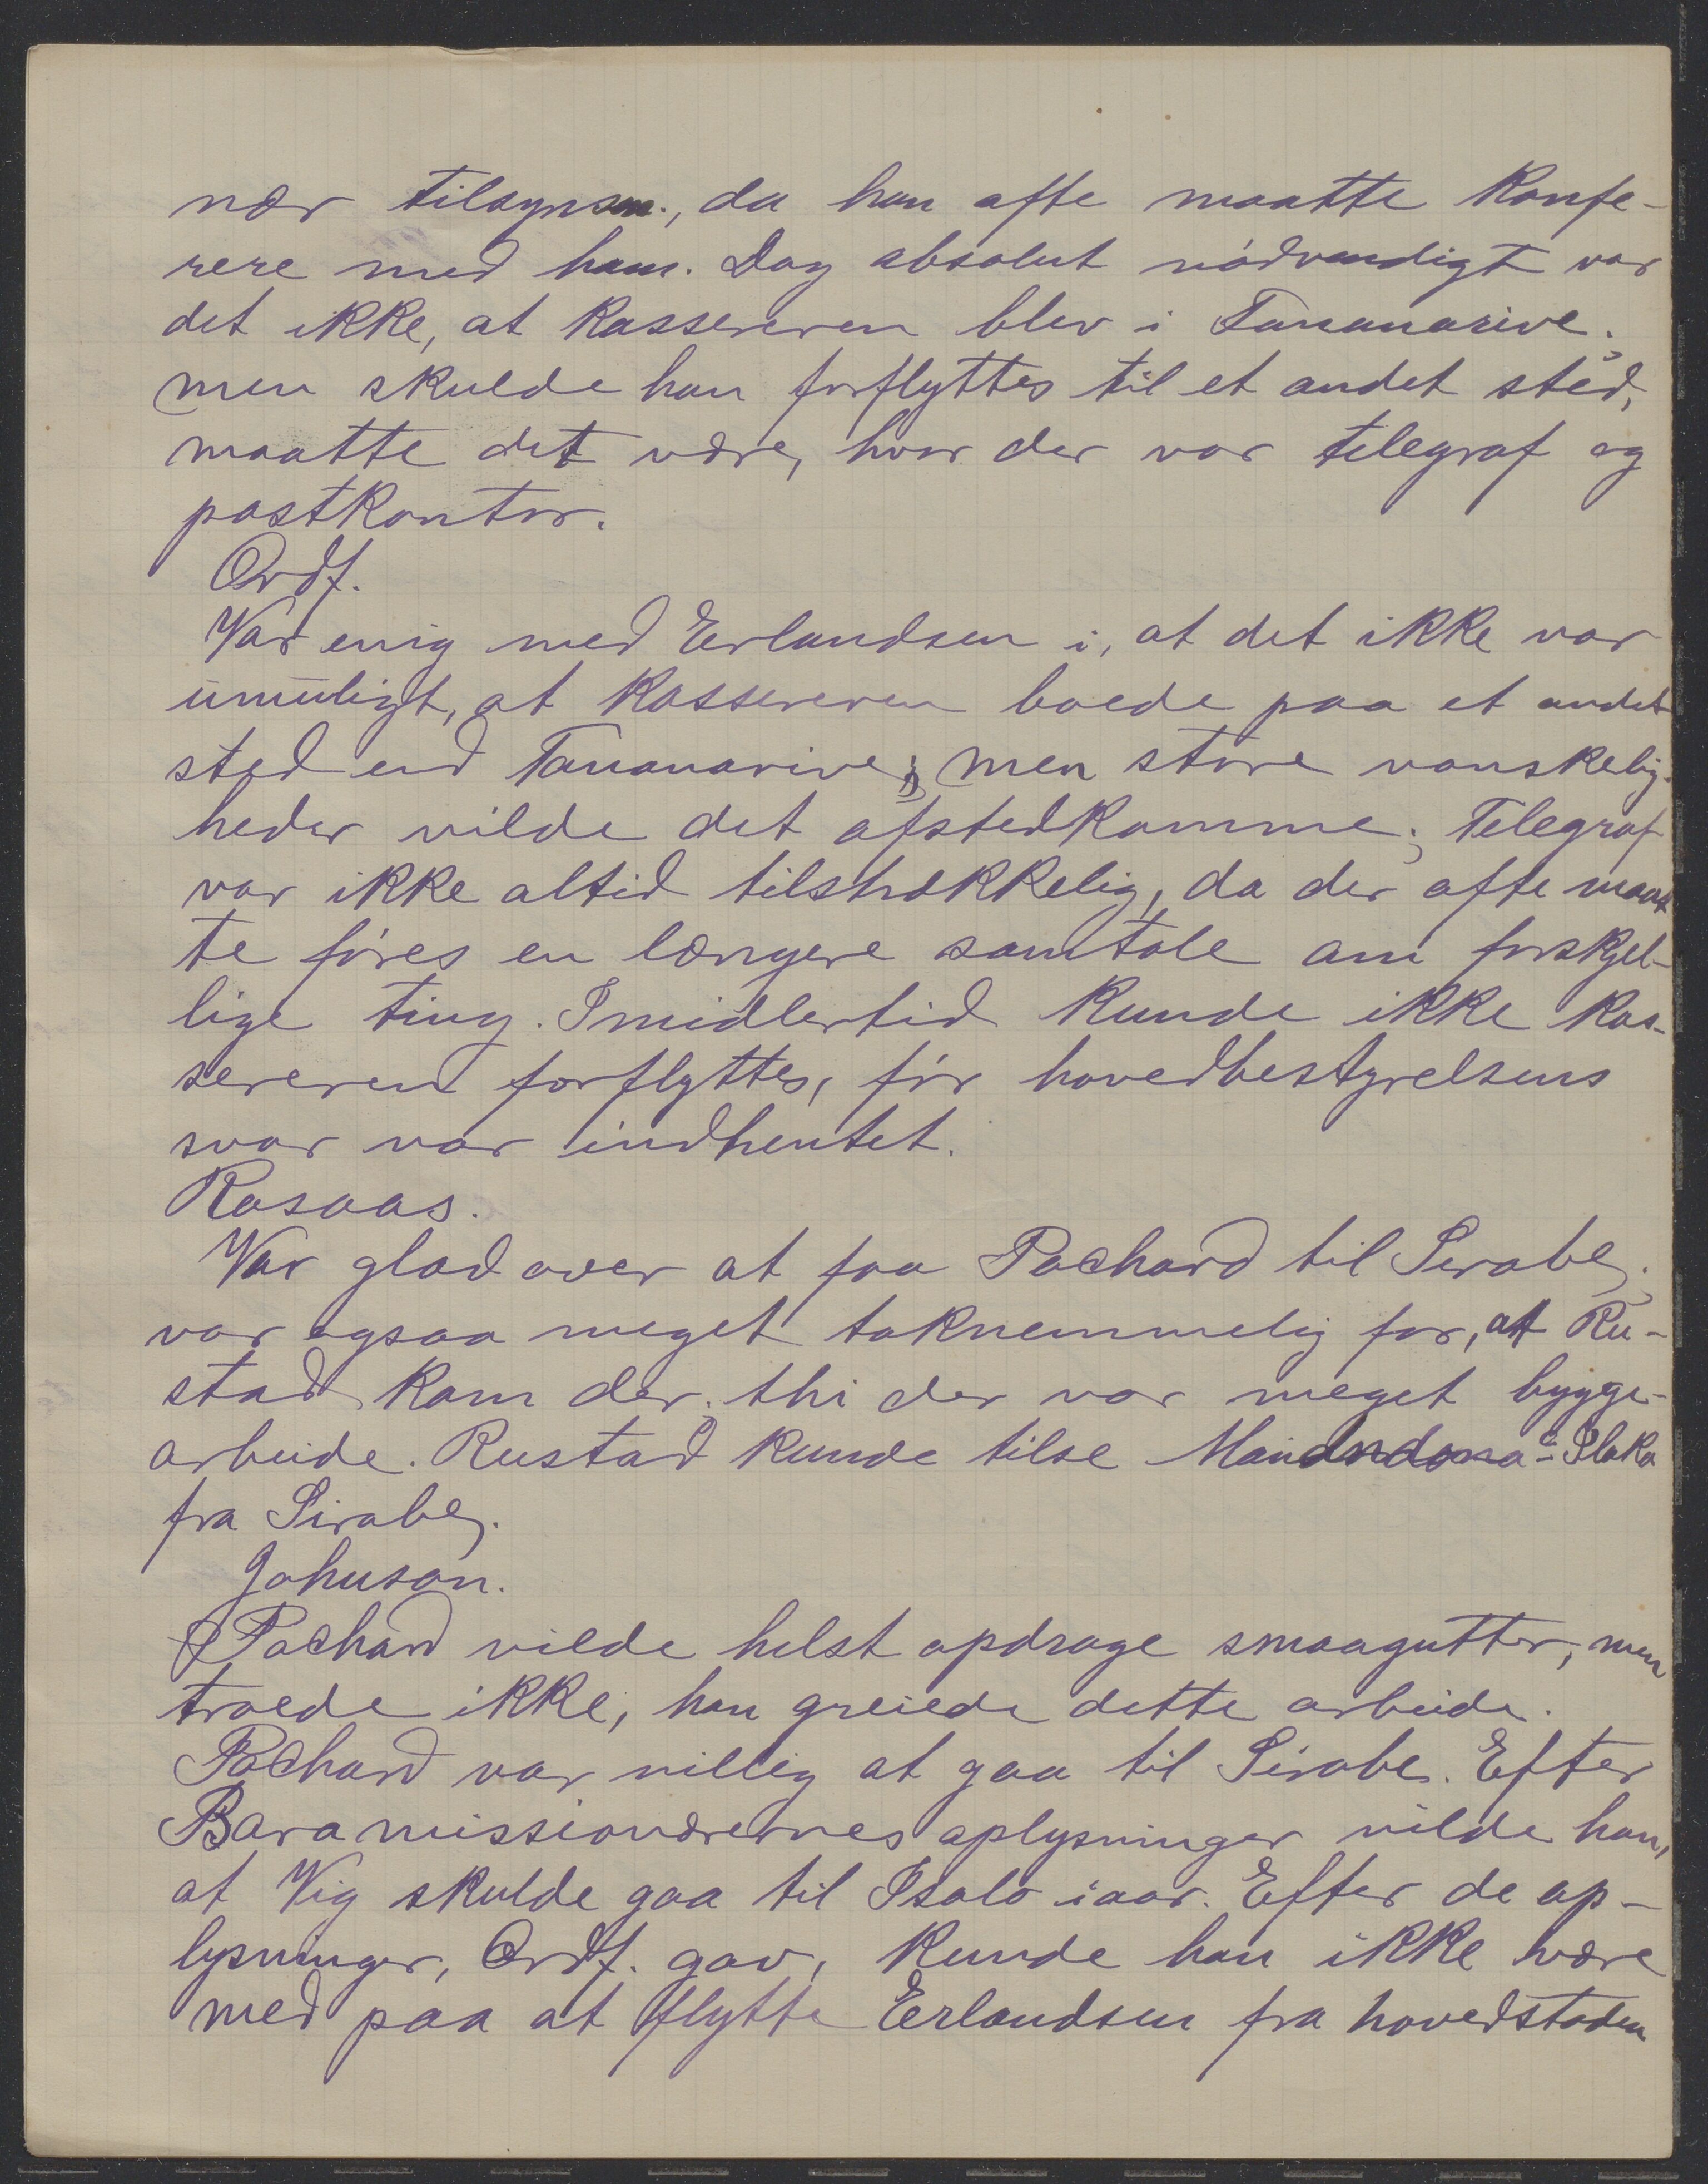 nær tilsynsm., da han ofte maatte konfe-
rere med ham. Dog absolut nödvendigt var
det ikke, at kassereren blev i Tananarive;
men skulde han forflyttes til et andet sted,
maatte det være, hvor der var telegraf og
postkontor.
Ordf.
Var enig med Erlandsen i, at det ikke var
umuligt, at kassereren boede paa et andet
sted end Tananarive; men store vanskelig-
heder vilde det afstedkomme; Telegraf
var ikke altid tilstrækkelig, da der ofte maat
te föres en længere samtale om forskjel-
lige ting. Imidlertid kunde ikke kas-
sereren forflyttes, för hovedbestyrelsens
svar var indhentet.
Rosaas.
Var glad over at faa Pochard til Sirabe;
var ogsaa meget taknemmelig for, at Ru-
stad kom der; thi der var meget bygge-
arbeide. Rustad kunde tilse - Ilaka
fra Sirabe.
Johnson.
Pochard vilde helst opdrage smaagutter, men
troede ikke, han greiede dette arbeide.
Pochard var villig at gaa til Sirabe. Efter
Baramissionærernes oplysninger vilde han,
at Vig skulde gaa til Isalo iaar. Efter de op-
lysninger, Ordf. gav, kunde han ikke være
med paa at flytte Erlandsen fra hovedstaden